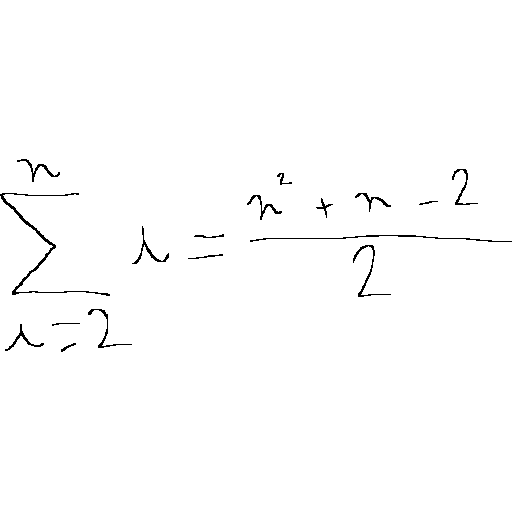 \sum_{i=2}^{n} i = \frac{n^2 + n - 2}{2}